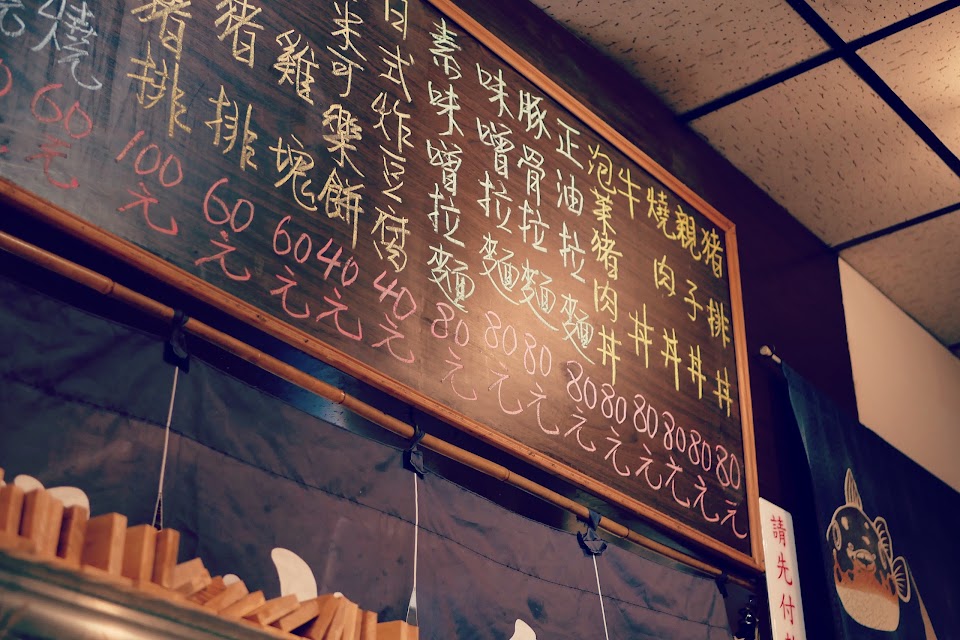 豬排丼 80元
親子丼 80元
燒肉丼 80元
牛丼 80元
泡菜豬肉丼 80元
正油拉麵 80元
豚骨拉麵 80元
味噌拉麵 80元
素味噌拉麵 80元
日式炸豆腐 40元
可樂餅 40元
雞塊 60元
豬排 60元
豬排 100元
燒 60元
請先付